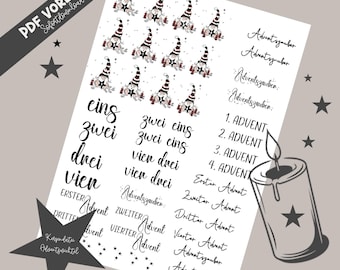 PDF VORL
Sofortdownload
Adventszauber
Adventszauber
Adventszauber
Adventszauber
1. ADVENT
2. ADVENT
3. ADVENT
4. ADVENT
Erster Advent
Zweiter Advent
Dritter Advent
Vierter Advent
Adventszauber
eins
zwei
drei
vier
zwei eins
vier drei
zwei eins
vier drei
Adventszauber
ERSTER Advent
ZWEITER Advent
DRITTER Advent
VIERTER Advent